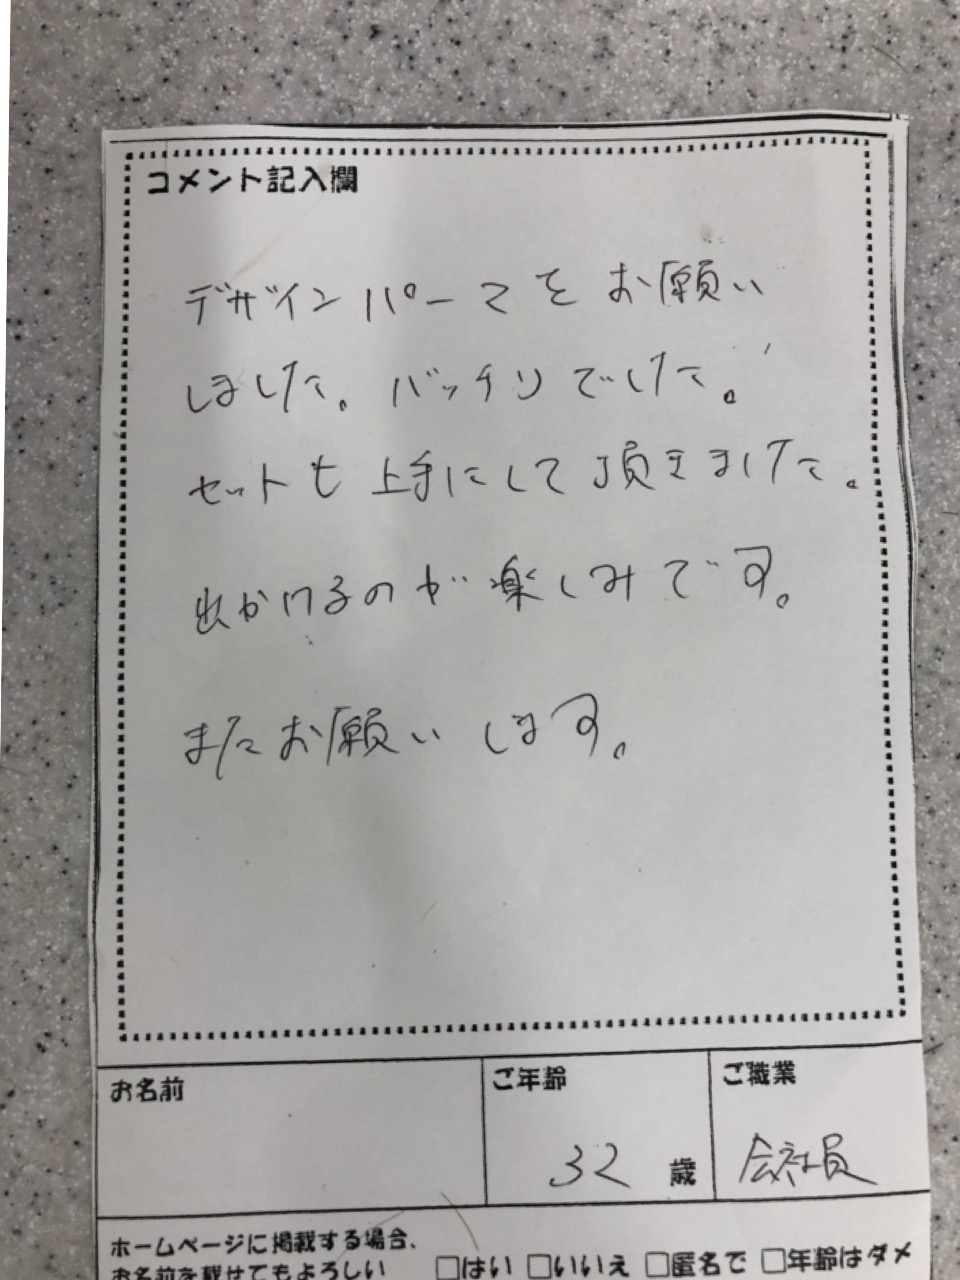 コメント記入欄
デザインパーマをお願い
しました。バッチリでした。
セットも上手にして頂きました。
出かけるのが楽しみです。
またお願いします。
お名前
ご年齢
ご職業
32 歳
会社員
ホームページに掲載する場合、
お名前を載せてもよろしい
□はい □いいえ □匿名で □年齢はダメ